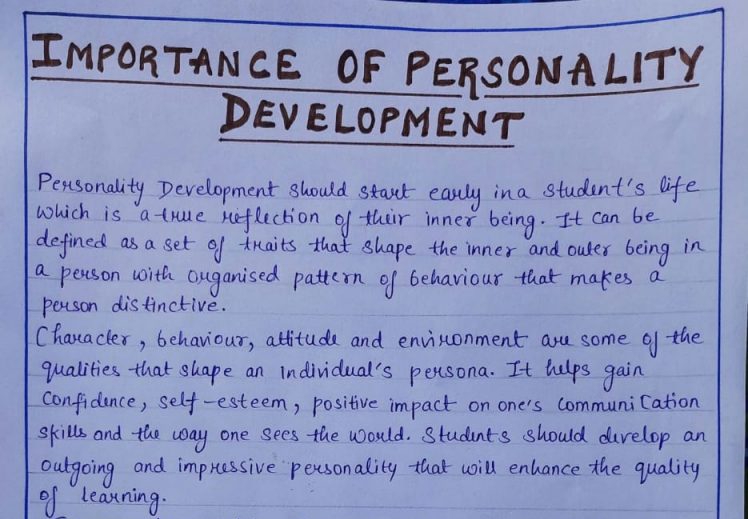 IMPORTANCE OF PERSONALITY
DEVELOPMENT
Personality Development should start early in a student's life
which is a true reflection of their inner being. It can be
defined as a set of traits that shape the inner and outer being in
a person with organised pattern of behaviour that makes a
person distinctive.
Character, behaviour, attitude and environment are some of the
qualities that shape an individual's persona. It helps gain
confidence, self-esteem, positive impact on one's communication
skills and the way one sees the world. Students should develop an
outgoing and impressive personality that will enhance the quality
of learning.